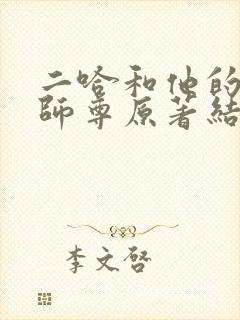 二哈和他的
師尊原著結
李文啓